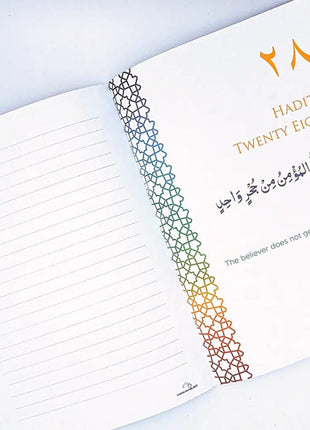 ٢٨
HADIT
TWENTY EIG
المؤمن مِنْ جُحْرٍ وَاحِدٍ
The believer does not ge